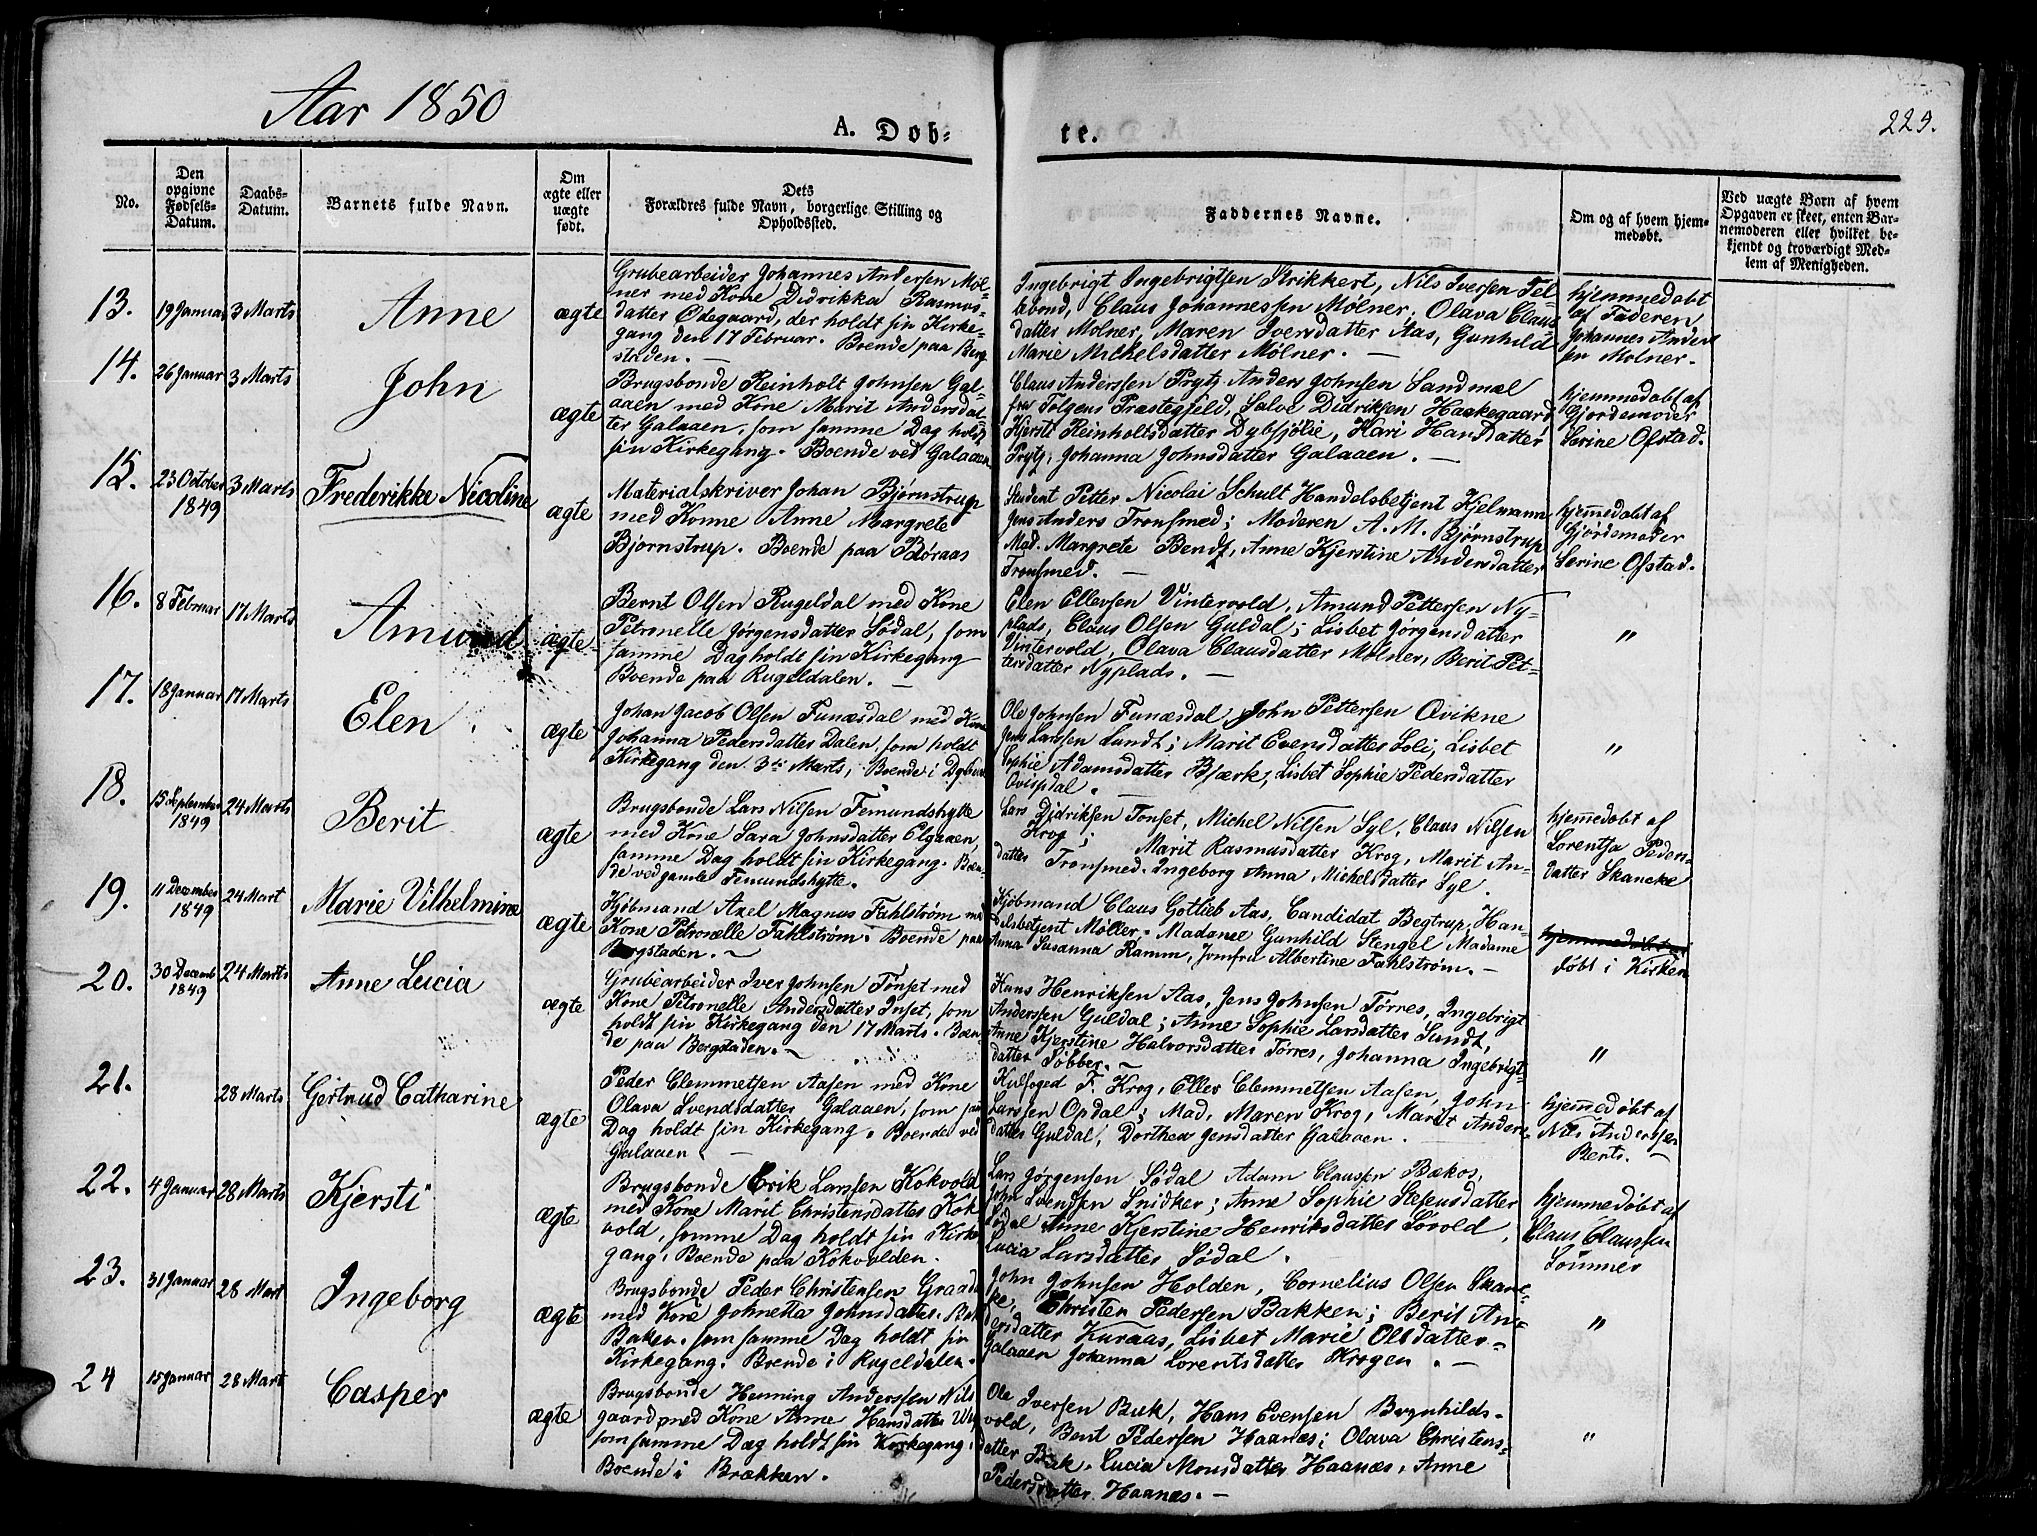 Aar 1850
A. Døb-
te.
229.
No.
Den
opgivne
Fødsels-
Datum.
Daabs-
Datum.
Barnets fulde Navn.
Om
ægte eller
uægte
født.
Dets
Forældres fulde Navn, borgerlige Stilling og
Opholdssted.
Faddernes Navne.
Om og af hvem hjem-
medøbt.
Ved uægte Børn af hvem
Opgaven er skeet, enten Bar-
nemoderen eller hvilket be-
kjendt og troværdigt Med-
lem af Menigheden.
13.
19 Januar
3 Marts
Anne
ægte
Grubearbeider Johannes Andersen Møl-
ner med Kone Didrikka Rasmus-
datter Ødegaard, der holdt sin Kirke-
gang den 17 Februar. Boende paa Berg
staden. —
Ingebrigt Ingebrigtsen Strikkert, Nils Iversen Fel-
Claus Johannessen Mølner, Olava Claus
datter Mølner, Maren Iversdatter Aas, Gunhild
Marie Michelsdatter Mølner. —
hjemmedøbt
af Faderen
Johannes Anders
sen Mølner.
14.
26 Januar
3 Marts
John
ægte
Brugsbonde Reinholt Johnsen Gal-
aaen med Kone Marit Andersdat-
ter Galaaen, som samme Dag holdt
sin Kirkegang. Boende ved Galaaen
Claus Anderssen Prytz, Anders Johnsen Sandmæl
fra Tolgens Præstegjeld, Salve Didriksen Haakegaard,
Kjersti Reinholtsdatter Dybsjølie, Kari Hansdatter
Prytz, Johanna Johnsdatter Galaaen. —
hjemmedøbt af
Gjordemoder
Serine Ofstad.
15.
23 October
1849
3 Marts
Frederikke Nicoline
ægte
Materialskriver Johan Bjørnstrup
med Konne Anne Margrete
Bjørnstrup. Boende paa Røraas
Student Petter Nicolai Schult Handelsbetjent Kjelmann
Jens Anders Tronsmed; Moderen A. M. Bjørnstrup
Mad. Margrete Bendz, Anne Kjerstine Andersdatter
Tronsmed. —
hjemmedøbt af
Gjordemoder
Serine Ofstad.
16.
8 Februar
17 Marts
Amund
ægte
Bernt Olsen Rugeldal med Kone
Petronelle Jørgensdatter Sødal, som
samme Dag holdt sin Kirkegang
Boende paa Rugeldalen. —
Elen Ellevsen Vintervold, Amund Pettersen Ny-
plads, Claus Olsen Guldal; Lisbet Jørgensdatter
Vintervold, Olava Clausdatter Mølner, Berit Pet-
tersdatter Nyplads. —
"
17.
18 Januar
17 Marts
Elen
ægte
Johan Jacob Olsen Funæsdal med Kone
Johanna Pedersdatter Dalen, som holdt
Kirkegang den 3de Marts, Boende i
Ole Johnsen Funæsdal, John Pettersen Qvikne
Jens Larssen Lundt; Marit Evensdatter Soli, Lisbet
Sophie Adamsdatter Bjærk, Lisbet Sophie Pedersdatter
—
"
18.
15 September
1849
24 Marts
Berit
ægte
Brugsbonde Lars Nilsen Femundshytte
med Kone Sara Johnsdatter Elgaaen,
samme Dag holdt sin Kirkegang. Boen-
de ved gamle Femundshytte.
Lars Didriksen Tonset, Michel Nilsen Syl, Claus Nilsen
Krog; Marit Rasmusdatter Krog, Marit An-
datter Tronsmed. Ingeborg Anna Michelsdatter Syl.
hjemmedøbt af
Lorentsa Peders-
datter Skancke
19.
11 December
1849
24 Mart
Marie Vilhelmine
ægte
Kjøbmand Axel Magnus Fahlstrøm med
Kone Petronelle Fahlstrøm. Boende paa
Bergstaden. ~
Kjøbmand Claus Gotlieb Aas, Candidat Begtrup, Han-
delsbetjent Møller. Madame Gunhild Stengel Madame
Anna Susanna Ramm, Jomfru Albertine Fahlstrøm. —
hjemmedøbt af
døbt i Kirken
20.
30 Decemb
1849
24 Marts
Anne Lucia
ægte
Grubearbeider Iver Johnsen Tønset med
Kone Petronelle Andersdatter Inset, som
holdt sin Kirkegang den 17 Marts. Boen-
de paa Bergstaden. ~
Hans Henriksen Aas, Jens Johnsen Tørres, Ingebrigt
Anderssen Guldal; Anne Sophie Larsdatter Sundt,
Anne Kjerstine Halvorsdatter Tørres, Johanna Ingebrigt-
datter Tøbber. ~
"
21.
28 Marts
Gertrud Catharine
ægte
Peder Clemmetsen Aasen med Kone
Olava Svendsdatter Galaaen, som samme
Dag holdt sin Kirkegang. Boende ved
Galaaen —
Kulfoged F. Krog, Eller Clemmetsen Aasen, John
Larssen Opdal; Mad. Maren Krog, Marit Anders-
datter Guldal, Dorthea Jensdatter Galaaen.
hjemmedøbt af
Nils Anderssen
Bents. —
22.
4 Januar
28 Marts
Kjersti
ægte
Brugsbonde Erik Larssen Kokvold
med Kone Marit Christensdatter Kok
vold, samme Dag holdt sin Kirke
gang, Boende paa Kokvolden.
Lars Jørgensen Sødal Adam Claussen Bækos,
John Svendsen Snidker; Anne Sophie Stefensdatter
Sødal Anne Kjerstine Henriksdatter Søvold,
Lucia Larsdatter Sødal.
hjemmedøbt af
Claus Claussen
Sømmer
23.
31 Januar
28 Mart
Ingeborg
ægte
Brugsbonde Peder Christensen Graade
med Kone Johnetta Johnsdatter
Baken, som samme Dag holdt sin
Kirkegang. Boende i Rugeldalen.
John Johnsen Holden, Cornelius Olsen Skanc-
ke, Christen Pedersen Bakken; Berit An-
dersdatter Kuraas, Lisbet Marie Olsdatter-
Galaaen Johanna Lorentsdatter Krogen. —
"
24
15 Januar
28 Mart
Casper
ægte
Brugsbonde Henning Anderssen Nils
gaard med Kone Anne Hansdatter
som samme Dag holdt sin Kirkegang,
Boende i Brækken.
Ole Iversen Bæk, Hans Evensen Brynhilds-
vold, Bent Pedersen Haanæs; Olava Christens-
datter Bæk. Lucia Monsdatter Haanæs, Anne
Pedersdatter Haanæs. —
"